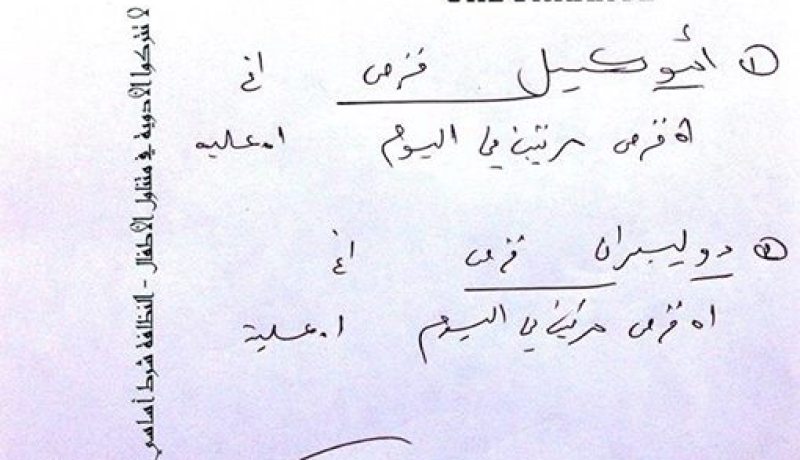 ① أموكسيل قرص 1غ
1ه قرص مرتين في اليوم 1.علبة
② دوليبران قرص 1غ
1ه قرص مرتين في اليوم 1.علبة
لا تتركوا الأدوية في متناول الأطفال - النظافة شرط أساسي